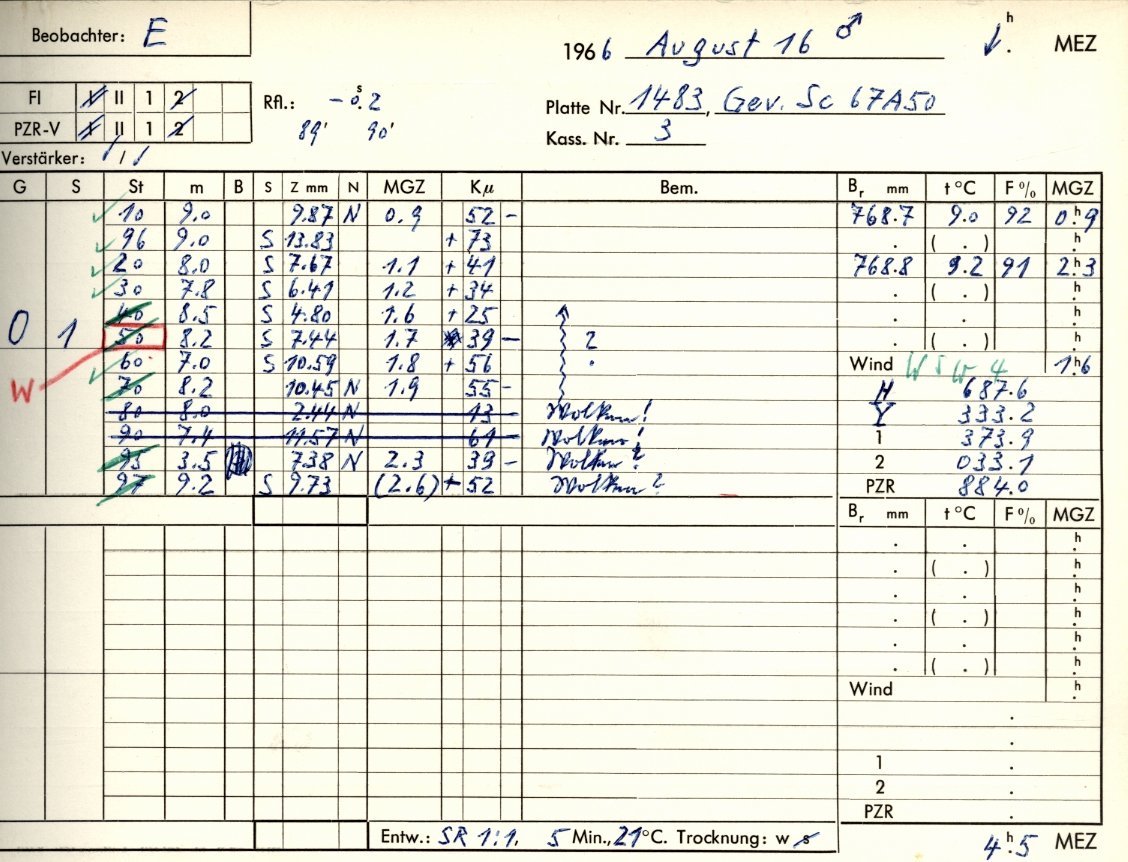 Beobachter: E
1966 August 16 ♂ h . MEZ
FI I II 1 2
PZR-V I II 1 2
Verstärker: / /
Rfl.: – 0.s2
89' 90'
Platte Nr. 1483, Gev. Sc 67A50
Kass. Nr. 3
G S St m B S Z mm N MGZ Kμ Bem. Br mm t °C F % MGZ
10 9.0 9.87 N 0.9 52 – 768.7 9.0 92 0.h9
96 9.0 S 13.83 + 73 . ( . ) h.
20 8.0 S 7.67 1.1 + 41 768.8 9.2 91 2.h3
30 7.8 S 6.41 1.2 + 34 . ( . ) h.
0 1 40 8.5 S 4.80 1.6 + 25 . . h.
50 8.2 S 7.44 1.7 39 – ? . ( . ) h.
60 7.0 S 10.59 1.8 + 56 Wind WSW 4 1.h6
W 70 8.2 10.45 N 1.9 55 – H 687.6
80 8.0 2.44 N 13 – Wolken! Y 333.2
90 7.4 11.57 N 61 – Wolken! 1 373.9
95 3.5 7.38 N 2.3 39 – Wolken? 2 033.1
97 9.2 S 9.73 (2.6) + 52 Wolken? PZR 884.0
Br mm t °C F % MGZ
. . h.
. ( . ) h.
. . h.
. ( . ) h.
. . h.
. ( . ) h.
Wind h.
.
.
1 .
2 .
PZR .
Entw.: SR 1:1. 5 Min., 21°C. Trocknung: w s 4.h5 MEZ